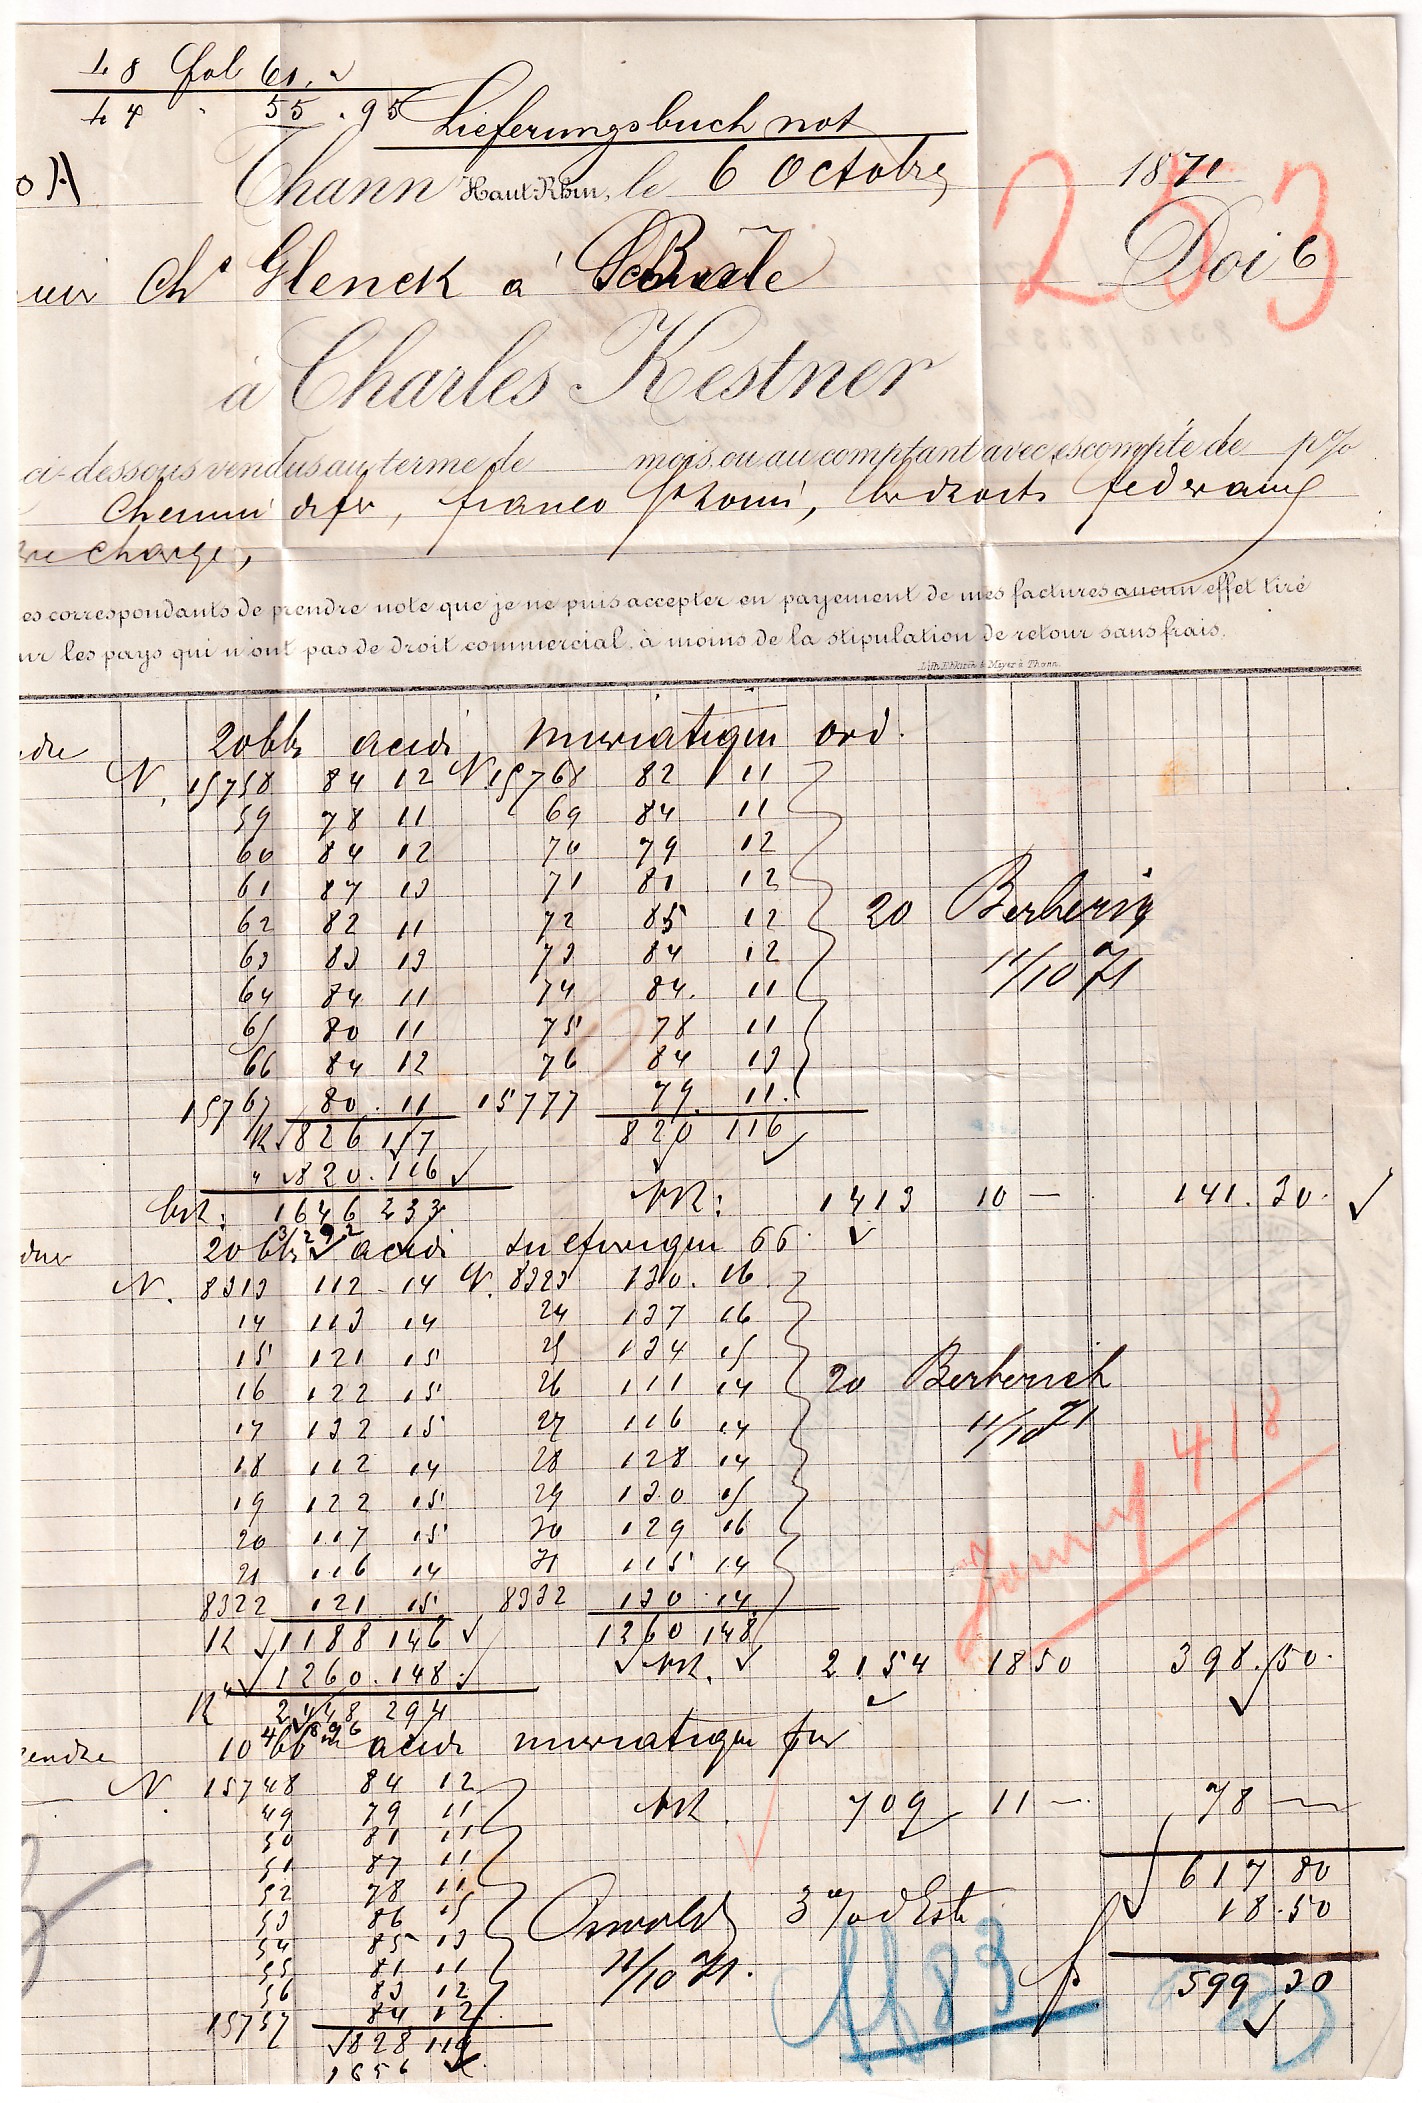 48 fol 61.
44 " 55.95
Lieferungsbuch not
Thann Haut-Rhin, le 6 Octobre 1871
253
Doit 6
Chs Glenck à Basle
à Charles Kestner
ci-dessous vendus au terme de mois, ou au comptant avec escompte de p%
Chemin de fer, franco St Louis, les droits fédéraux
charge,
es correspondants de prendre note que je ne puis accepter en payement de mes factures aucun effet tiré
ur les pays qui n'ont pas de droit commercial, à moins de la stipulation de retour sans frais.
20 bbs acide muriatique ord.
N. 15758 84 12 N. 15768 82 11
59 78 11 69 84 11
60 84 12 70 79 12
61 87 13 71 81 12
62 82 11 72 85 12 20 Berberig
63 83 13 73 84 12 11/10 71
64 84 11 74 84. 11
65 80 11 75 78 11
66 84 12 76 84 13
15767 80. 11 15777 79. 11.
K 826 117 820 116
" 820. 116
brt. 1646 233 Nt: 1413 10 — 141.30.
20 bbs acide sulfurique 66
N. 8313 112 14 N. 8323 130. 16
14 113 14 24 137 16
15 121 15 25 134 15
16 122 15 26 111 14 20 Berberich
17 132 15 27 116 14 11/10 71
18 112 14 28 128 14
19 122 15 29 130 15
20 117 15 30 129 16
21 116 14 31 115 14
8322 121 15 8332 130. 14
K 1188 146 1260 148
" 1260. 148. Nt. 2154 1850 398.50.
K 2448 294
418
10 bbs acide muriatique pur
N. 15748 84 12
49 79 11 Nt. 709 11 — 78 —
50 81 11
51 87 11 617 80
52 78 11
53 86 15 Oswald 3 % d'Este 18.50
54 85 13
55 81 11 11/10 71.
56 83 12 599 30
15757 84 12
828 119
83